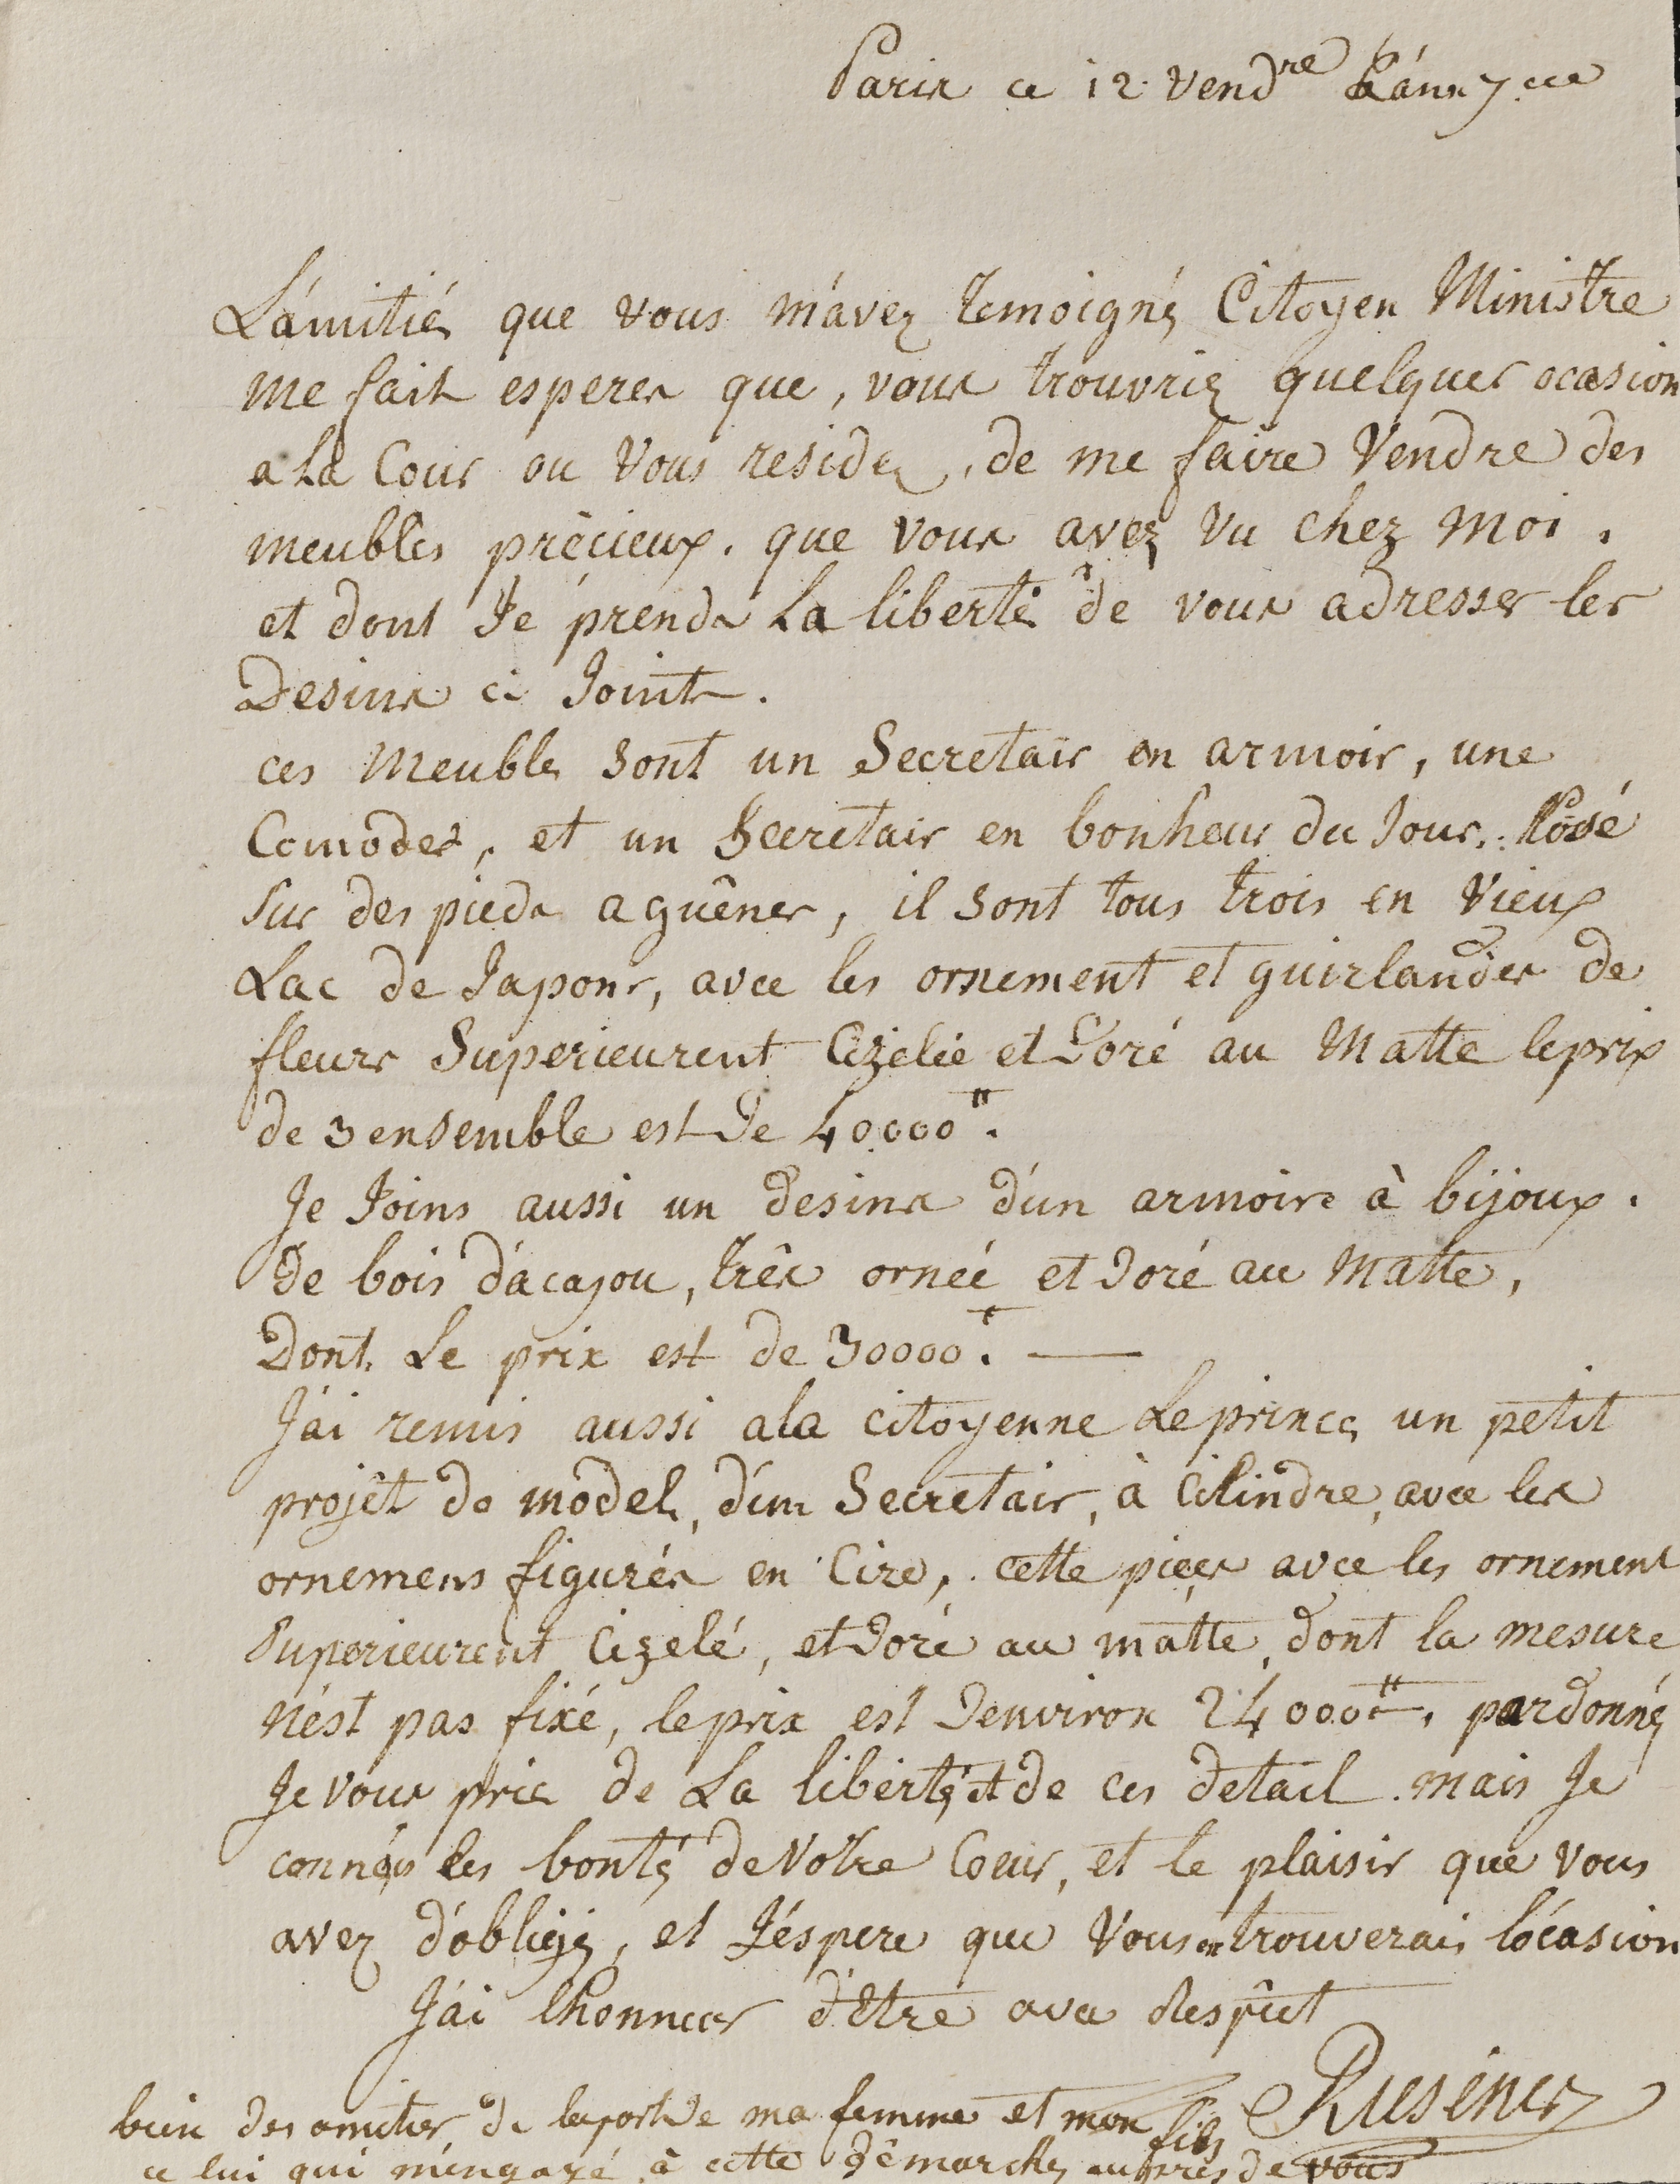 Paris ce 12 vend^re L'ánn 7
L'ámitié que vous m'ávez temoigné Citoyen Ministre
me fait esperer que, vous trouvriez quelques ocasion
a La Cour ou Vous residez, de me faire Vendre des
meubles prècieux. que vous avez vu chez moi,
et dont Je prends La liberté de vous adresser les
Desins ci Joint.
ces Meubles sont un Secretair en armoir, une
Comodes, et un Secretair en bonheur du Jour, Posé
sur des pieds a guênes, il sont tous trois en Vieux
Lac de Japons, avec les ornement et guirlandes de
fleurs Superieurent Cizelée et Doré au Matte le prix
de 3 ensemble est De 40000 ₶.
Je Joins aussi un desins d'un armoire à bijoux.
De bois d'ácajou, très ornéé et Doré au Matte,
Dont Le prix est de 30000 ₶. —
J'ái remis aussi a la citoyenne Leprince un petit
projêt de model, d'un Secretair, à Cilindre, avec les
ornemens figurés en Cire, cette pieces avec les ornement
Superieurent Cizelé, et Doré au matte, dont la mesure
n'ést pas fixé, le prix est Denviron 24000 ₶. pardonnéz
Je vous prie de La liberté et de ces detail. mais Je
les bontés de Votre Coeur, et le plaisir que vous
avez d'óbligé, et J'éspere que Vous en trouverais l'ócasion
J'ái lhonneur d'Etre avec Respêct
Riesener
bien des amities de la part De ma femme et mon fils
ce lui qui m'éngagé à cette Dêmarches auprès de vous